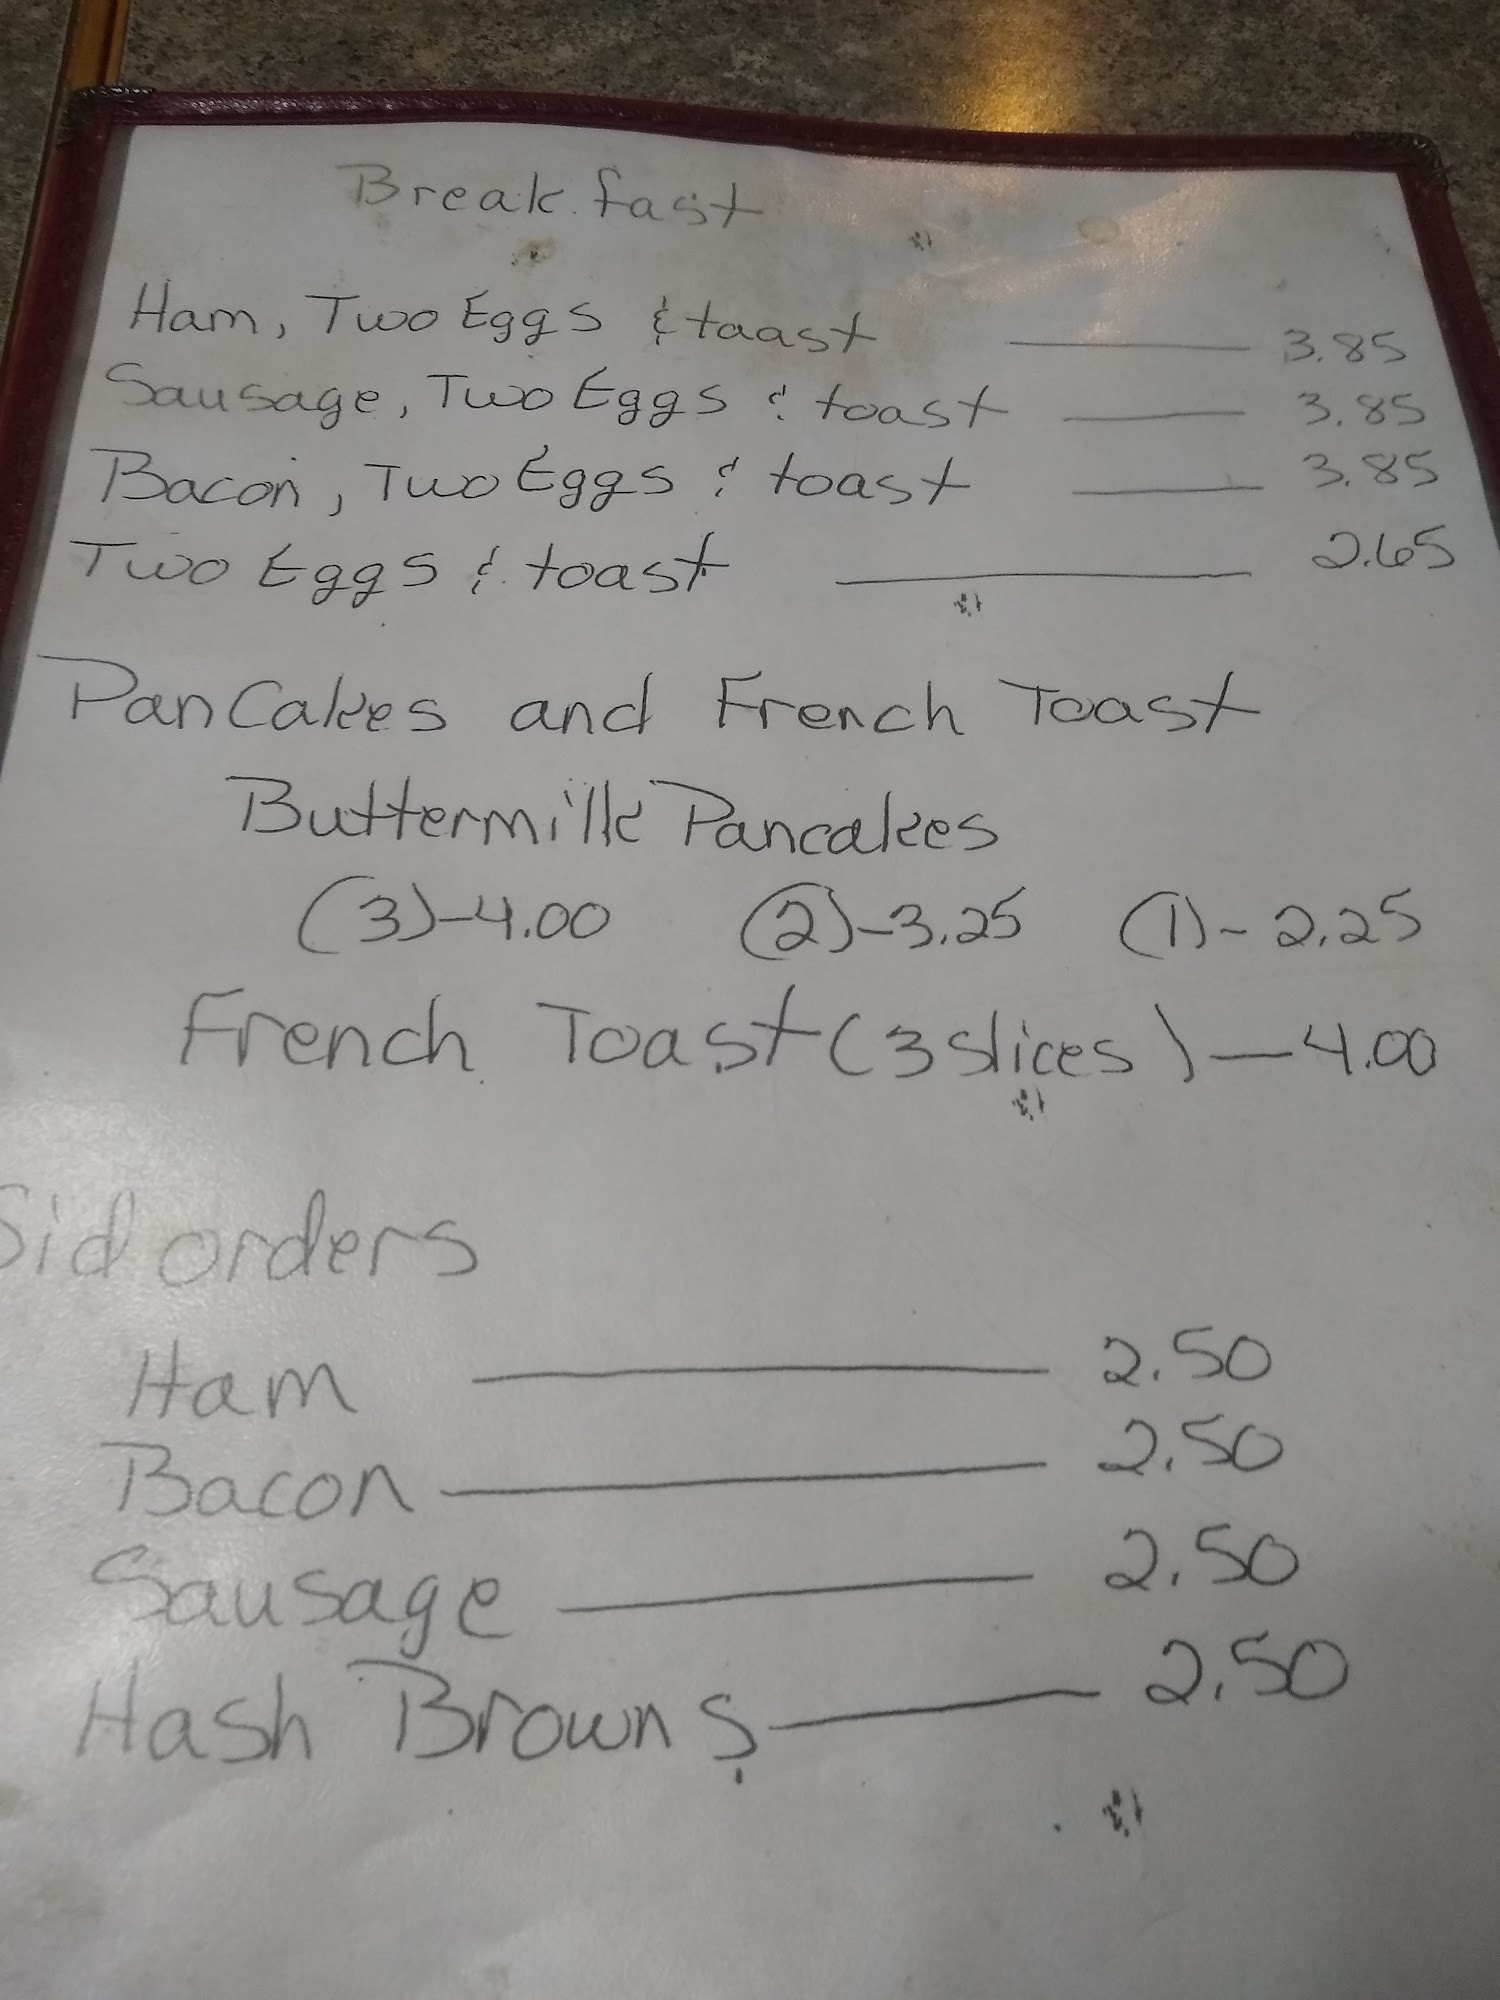 Breakfast
Ham, Two Eggs & taast — 3.85
Sausage, Two Eggs & toast — 3.85
Bacon, Two Eggs & toast — 3.85
Two Eggs & toast — 2.65
PanCakes and French Toast
Buttermilk Pancakes
(3)-4.00 (2)-3.25 (1)-2.25
French Toast (3 slices) — 4.00
Sid orders
Ham — 2.50
Bacon — 2.50
Sausage — 2.50
Hash Browns — 2.50